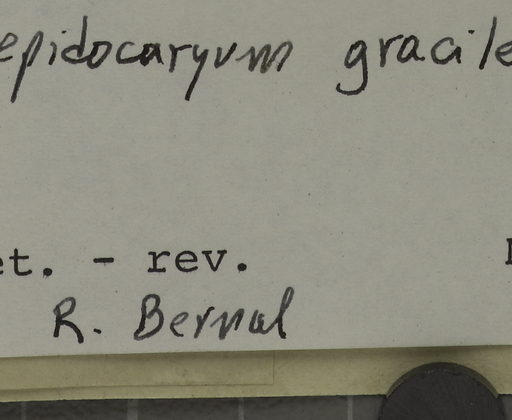 epidocaryum gracile
et. - rev.
R. Bernal